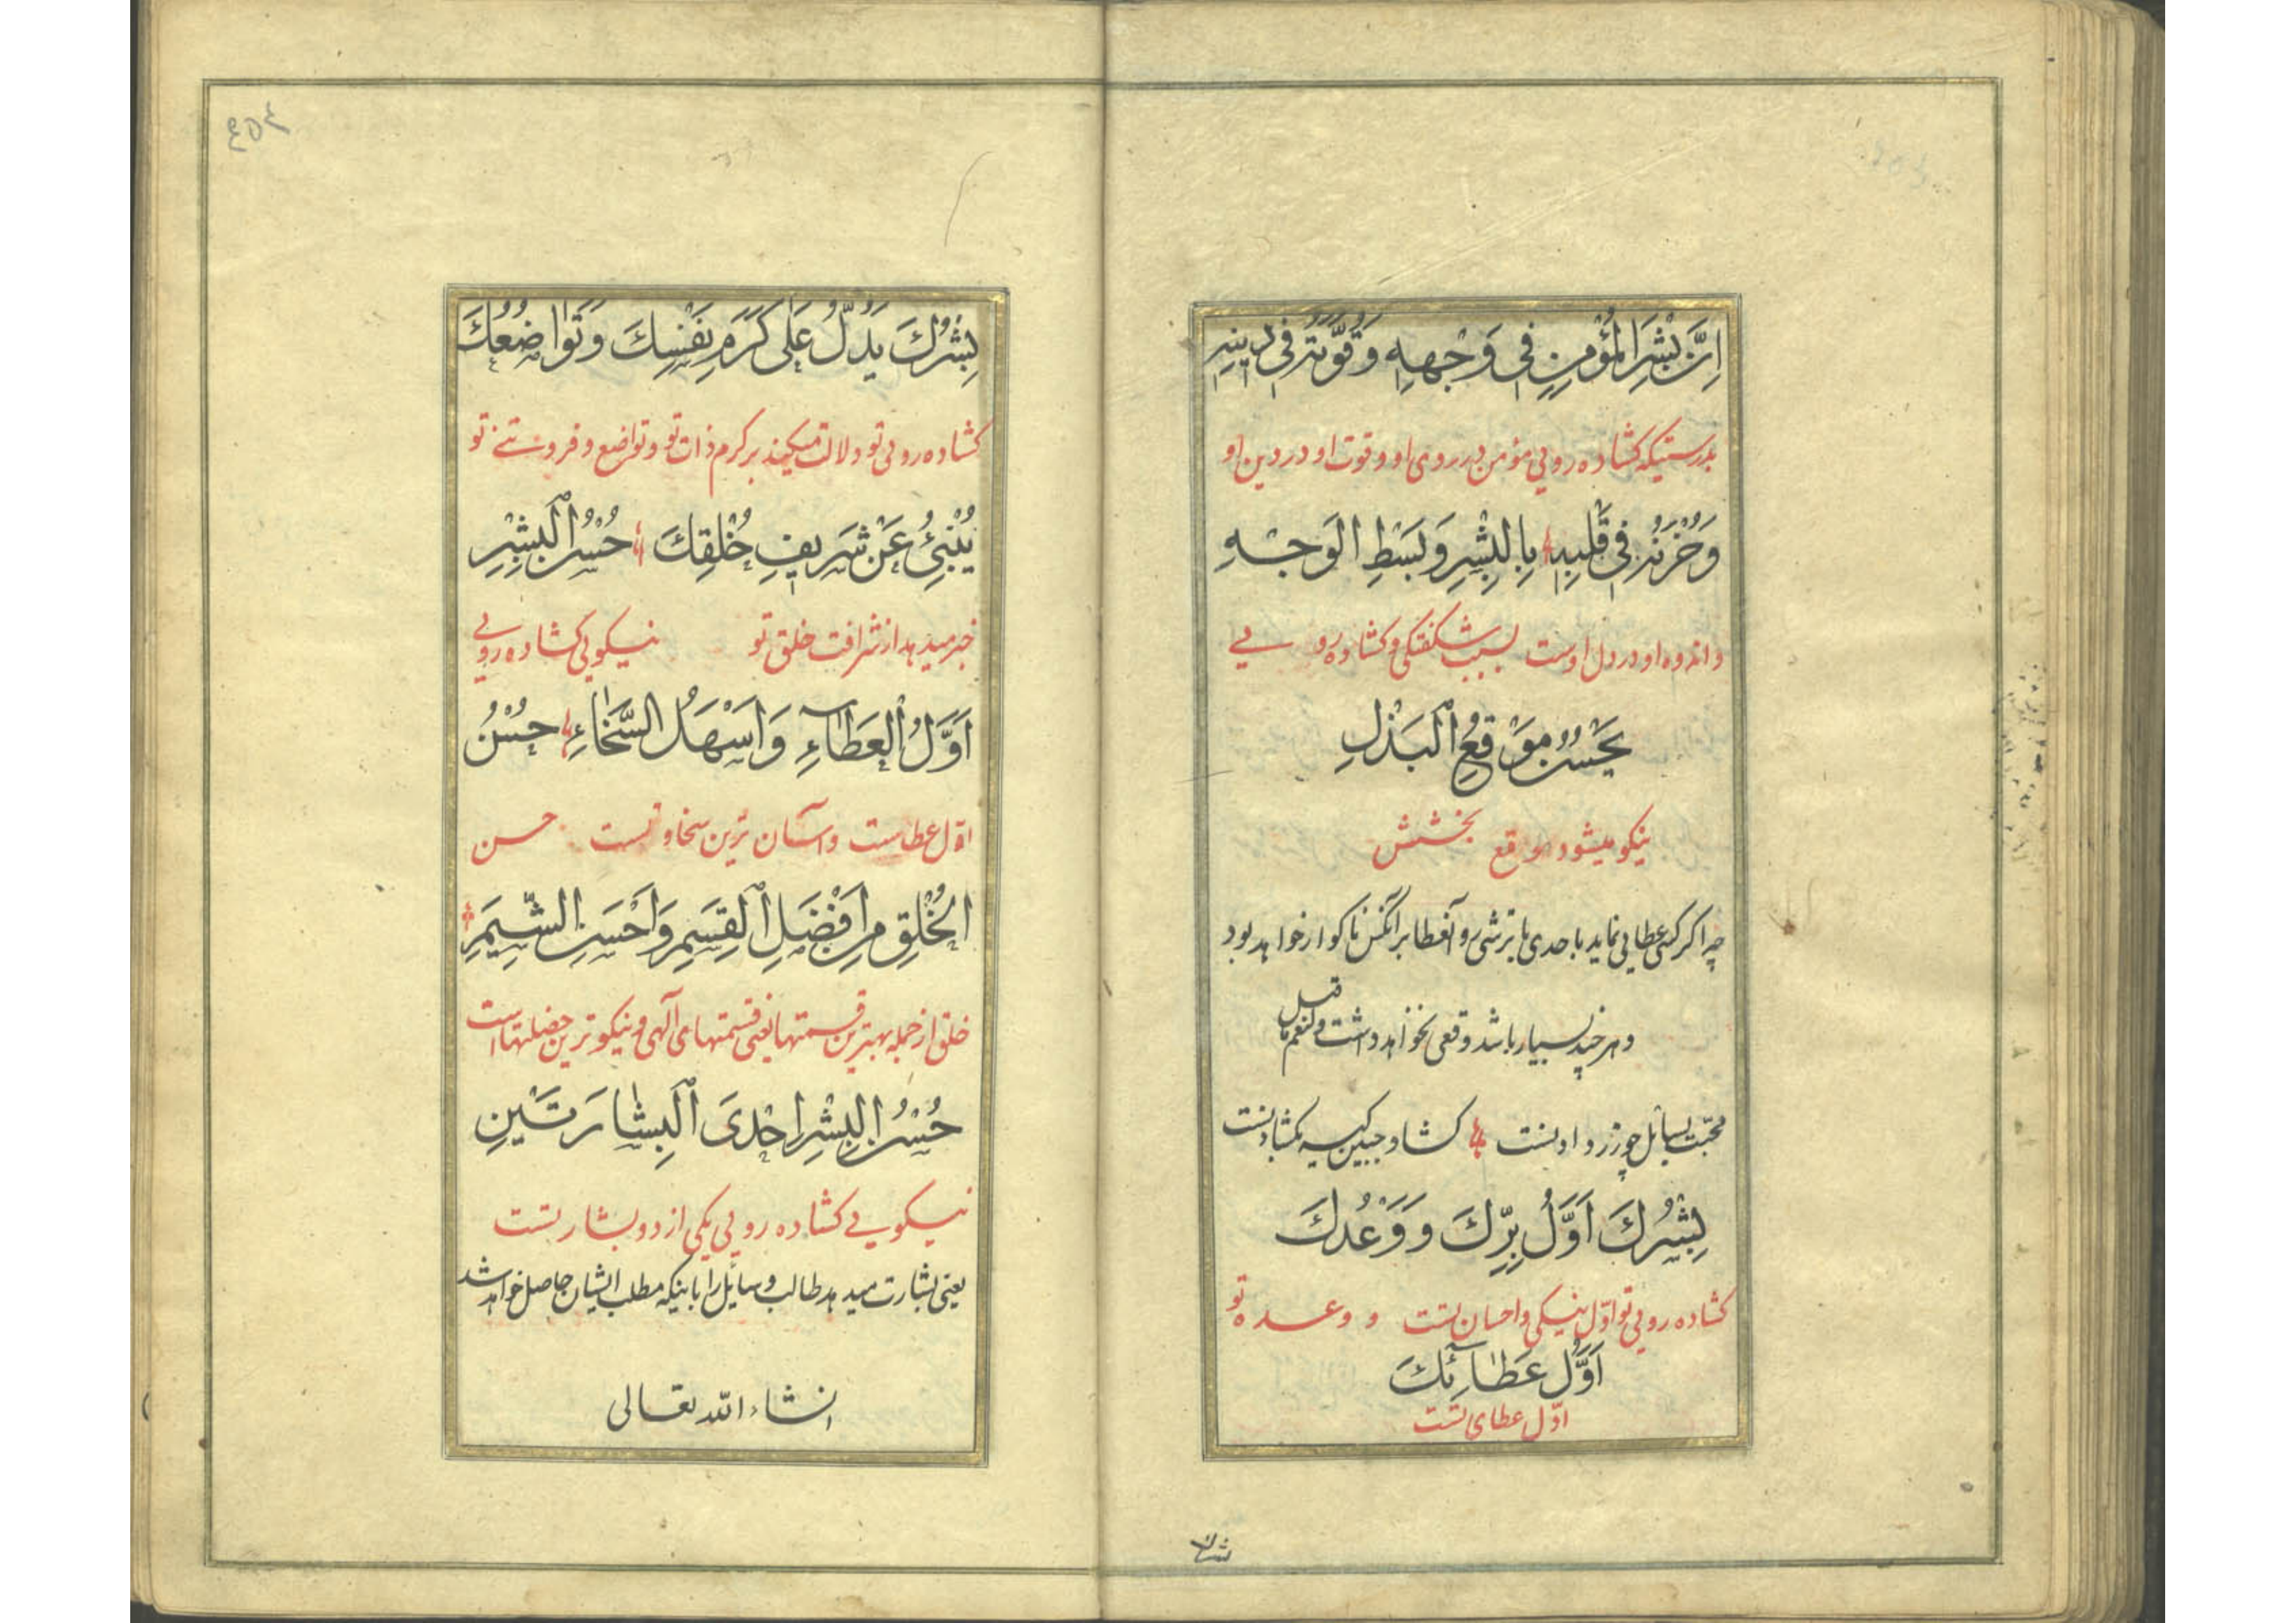 اِنَّ بِشْرَ الْمُؤْمِنِ فِی وَجْهِهِ وَقُوَّتَهُ فِی دِینِهِ
بدرستیکه کشاده رویی مؤمن در روی او و قوت او در دین او
وَحُزْنَهُ فِی قَلْبِهِ بِالْبِشْرِ وَبَسْطِ الْوَجْهِ
و اندوه او در دل اوست بسبب شکفتکی و کشاده رو یی
یَحْسُنُ مَوْقِعُ الْبَذْلِ
نیکو میشود موقع بخشش
چه اکر کسی عطایی نماید باحدی با ترشی رو آنعطا بر آنکس ناکوار خواهد بود
و هر چند بسیار باشد وقعی نخواهد داشت و لنعم ما قیل
محبت بسائل چو زر دادنست کشاد جبین کیسه بکشادنست
بِشْرُكَ اَوَّلُ بِرِّكَ وَ وَعْدُكَ
کشاده رویی تو اوّل نیکی و احسان تست و وعده تو
اَوَّلُ عَطَآئِكَ
اوّل عطای تست
بِشْرُكَ یَدُلُّ عَلَی كَرَمِ نَفْسِكَ وَتَوَاضُعُكَ
کشاده رویی تو دلالت میکند بر کرم ذات تو و تواضع و فروتنی تو
یُنْبِئُ عَنْ شَرِیفِ خُلْقِكَ حُسْنُ الْبِشْرِ
خبر میدهد از شرافت خلق تو نیکویی کشاده رویی
اَوَّلُ الْعَطَآءِ وَاَسْهَلُ السَّخَاءِ حُسْنُ
اوّل عطاست و آسان ترین سخاوتست حسن
الْخُلْقِ مِنْ اَفْضَلِ الْقِسَمِ وَاَحْسَنِ الشِّیَمِ
خلق از جمله بهترین قسمتها یعنی قسمتهای آلهی و نیکوترین خصلتهاست
حُسْنُ الْبِشْرِ اِحْدَی الْبِشَارَتَیْنِ
نیکویی کشاده رویی یکی از دو بشارتست
یعنی بشارت میدهد طالب و سائل را باینکه مطلب ایشان حاصل خواهد شد
انشاء الله تعالی